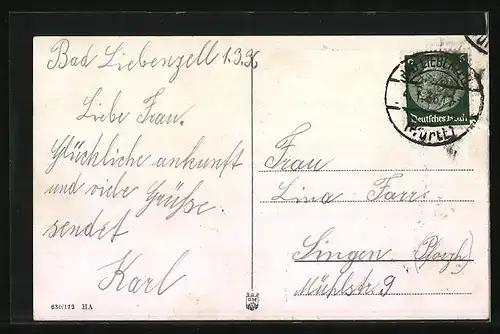 Bad Liebenzell 1.3.36
Liebe Frau.
Glückliche ankunft
und viele Grüße.
sendet
Karl
630/172 HA
Deutsches Reich
Frau
Lina Farr
Singen (Pforzh.)
Mühlstr. 9